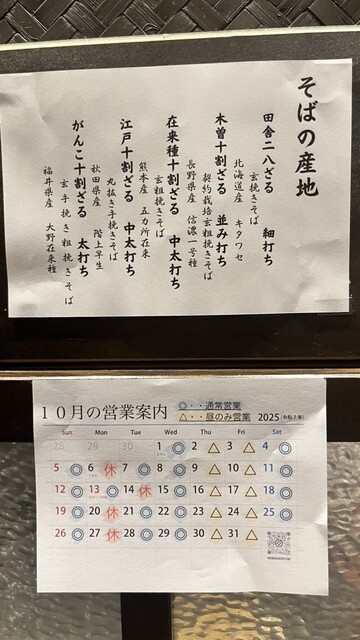 そばの産地
田舎二八ざる 細打ち
玄挽きそば
北海道産 キタワセ
木曽十割ざる 並み打ち
契約栽培玄粗挽きそば
長野県産 信濃一号種
在来種十割ざる 中太打ち
玄粗挽きそば
熊本産 五カ所在来
江戸十割ざる 中太打ち
丸抜き手挽きそば
秋田県産 階上早生
がんこ十割ざる 太打ち
玄手挽き粗挽きそば
福井県産 大野在来種
10月の営業案内
◎・・通常営業
△・・昼のみ営業 2025(令和7年)
Sun Mon Tue Wed Thu Fri Sat
28 29 30 1◎ 2△ 3△ 4◎
5◎ 6休 7◎ 8◎ 9△ 10△ 11◎
12◎ 13◎ 14休 15◎ 16△ 17△ 18◎
19◎ 20休 21◎ 22◎ 23△ 24△ 25◎
26◎ 27休 28◎ 29◎ 30△ 31△